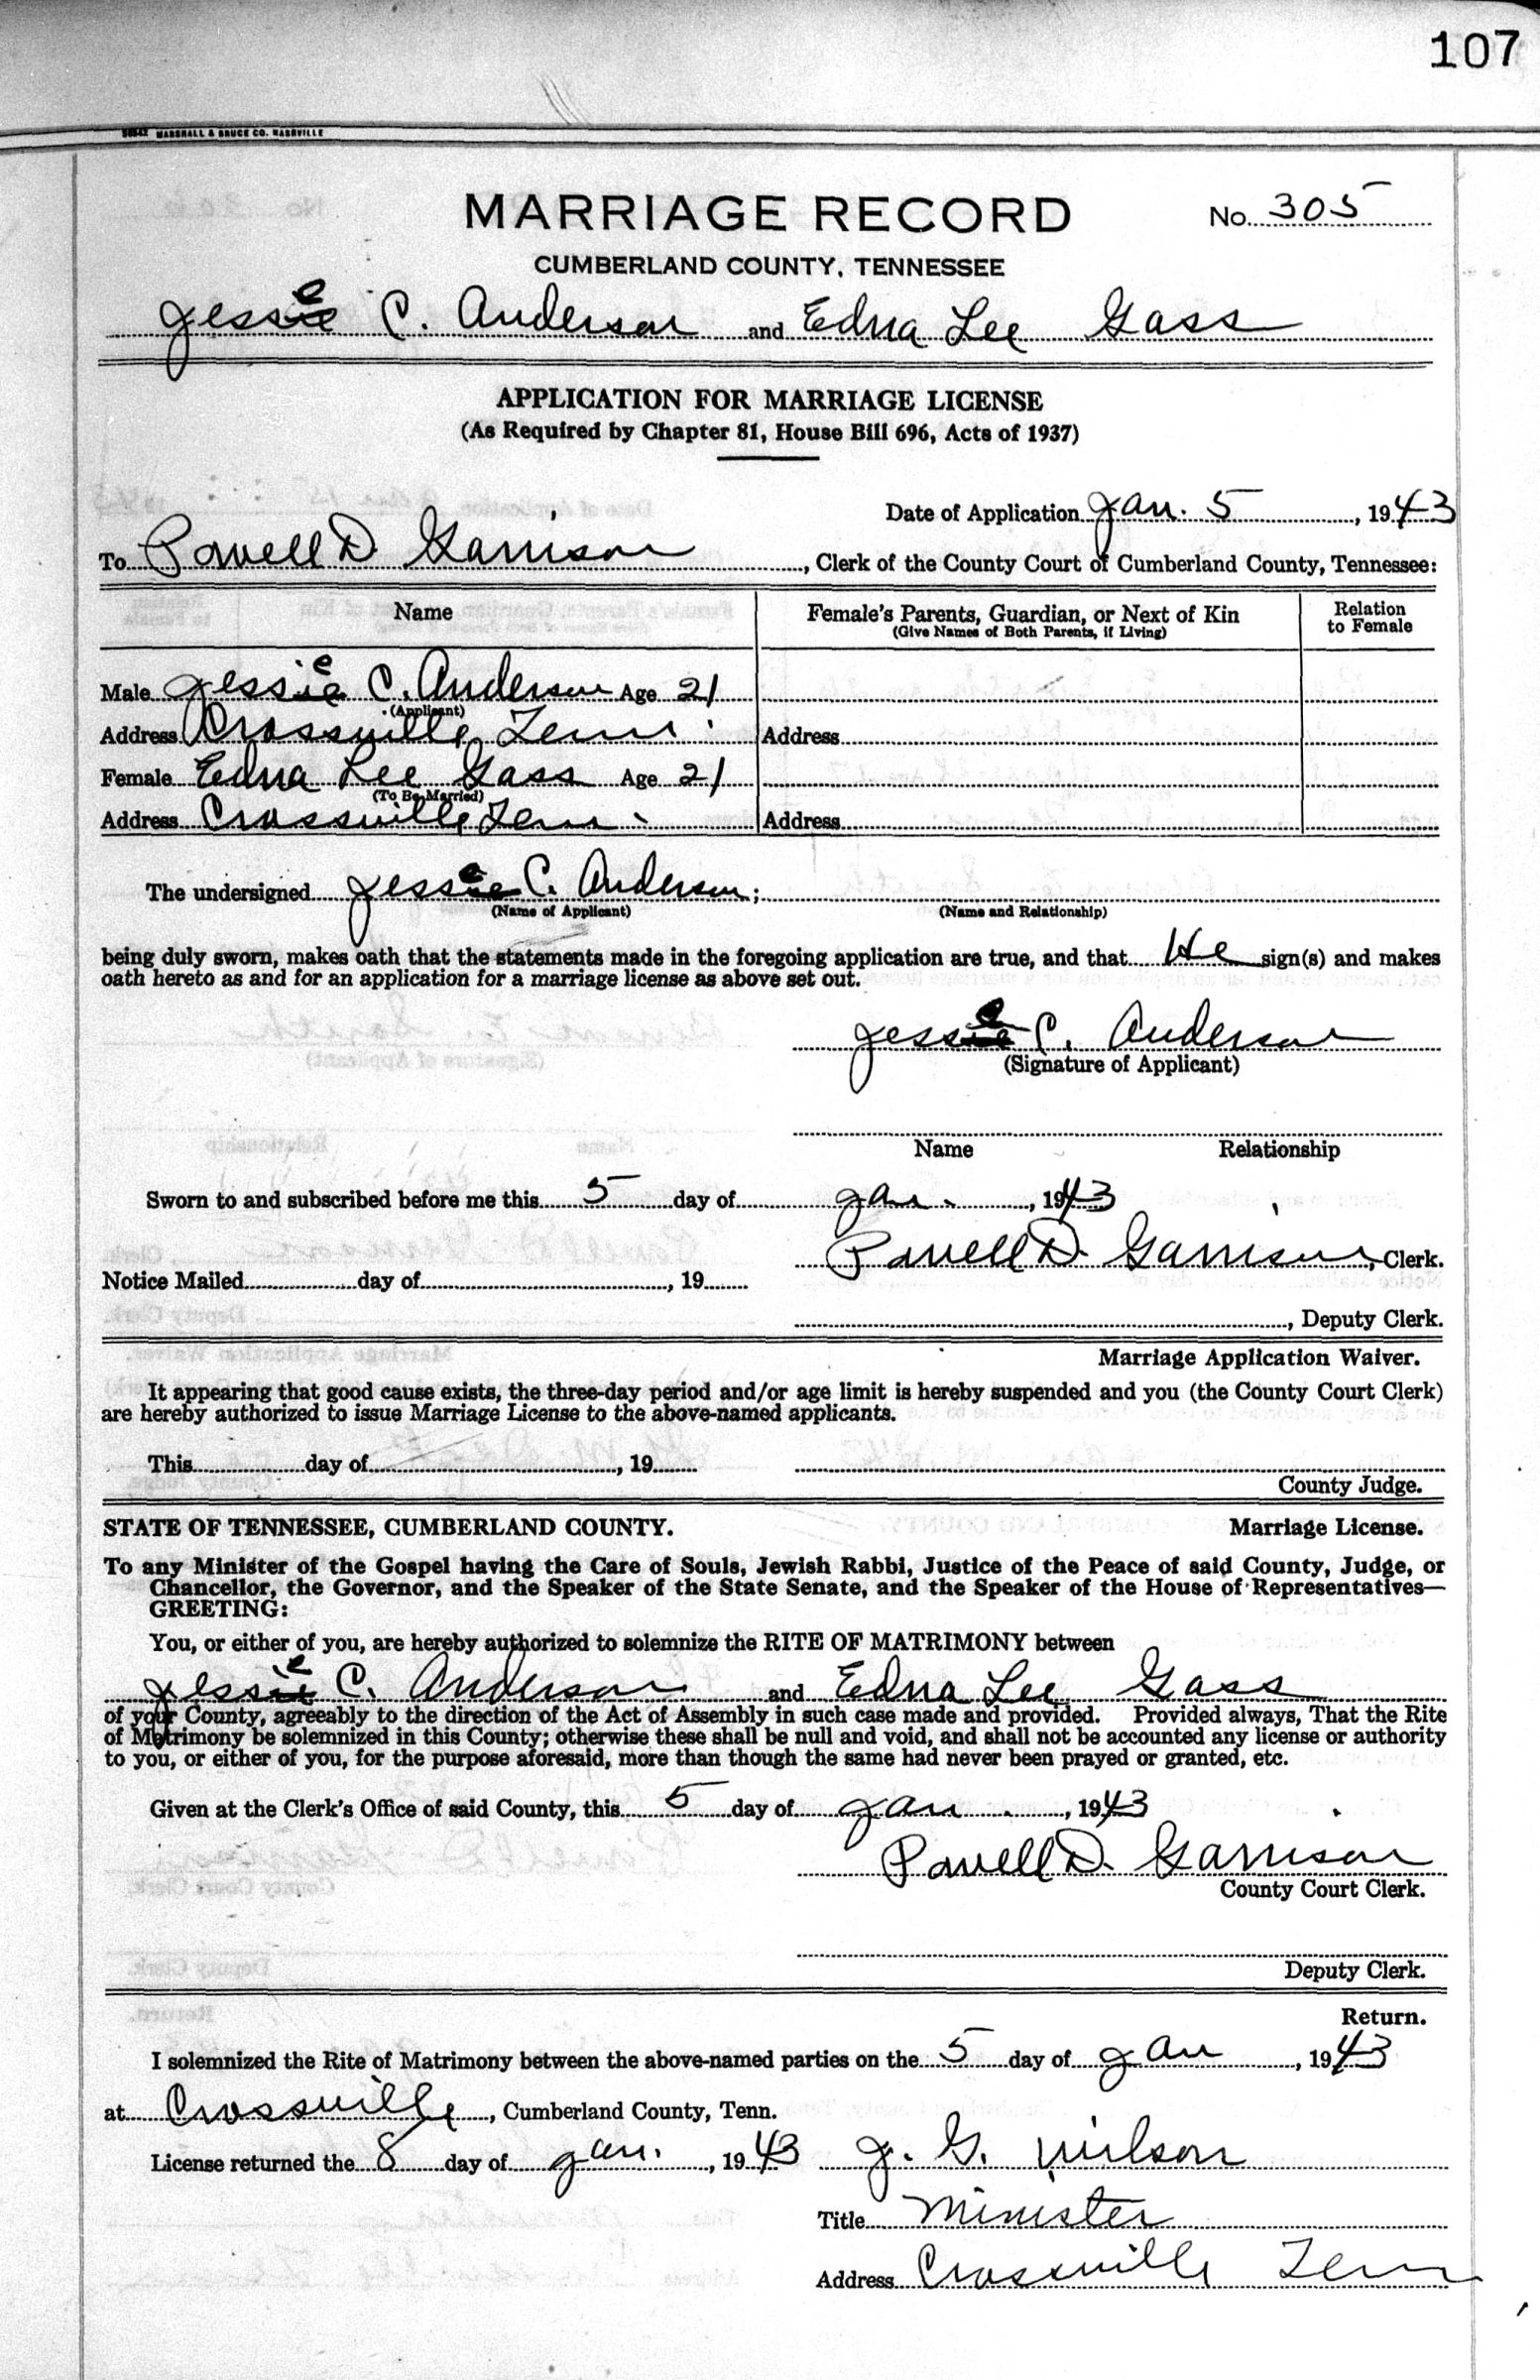 107
MARSHALL & BRUCE CO. NASHVILLE
MARRIAGE RECORD
No. 305
CUMBERLAND COUNTY, TENNESSEE
Jesse C. Anderson and Edna Lee Gass
APPLICATION FOR MARRIAGE LICENSE
(As Required by Chapter 81, House Bill 696, Acts of 1937)
Date of Application Jan. 5, 1943
To Powell D. Garrison, Clerk of the County Court of Cumberland County, Tennessee:
Name Female's Parents, Guardian, or Next of Kin Relation
(Give Names of Both Parents, if Living) to Female
Male Jesse C. Anderson Age 21
(Applicant)
Address Crossville Tenn. Address
Female Edna Lee Gass Age 21
(To Be Married)
Address Crossville Tenn. Address
The undersigned Jesse C. Anderson;
(Name of Applicant) (Name and Relationship)
being duly sworn, makes oath that the statements made in the foregoing application are true, and that He sign(s) and makes
oath hereto as and for an application for a marriage license as above set out.
Jesse C. Anderson
(Signature of Applicant)
Name Relationship
Sworn to and subscribed before me this 5 day of Jan., 1943
Powell D. Garrison, Clerk.
Notice Mailed day of , 19
, Deputy Clerk.
Marriage Application Waiver.
It appearing that good cause exists, the three-day period and/or age limit is hereby suspended and you (the County Court Clerk)
are hereby authorized to issue Marriage License to the above-named applicants.
This day of , 19
County Judge.
STATE OF TENNESSEE, CUMBERLAND COUNTY. Marriage License.
To any Minister of the Gospel having the Care of Souls, Jewish Rabbi, Justice of the Peace of said County, Judge, or
Chancellor, the Governor, and the Speaker of the State Senate, and the Speaker of the House of Representatives—
GREETING:
You, or either of you, are hereby authorized to solemnize the RITE OF MATRIMONY between
Jesse C. Anderson and Edna Lee Gass
of your County, agreeably to the direction of the Act of Assembly in such case made and provided. Provided always, That the Rite
of Matrimony be solemnized in this County; otherwise these shall be null and void, and shall not be accounted any license or authority
to you, or either of you, for the purpose aforesaid, more than though the same had never been prayed or granted, etc.
Given at the Clerk's Office of said County, this 5 day of Jan., 1943
Powell D. Garrison
County Court Clerk.
Deputy Clerk.
Return.
I solemnized the Rite of Matrimony between the above-named parties on the 5 day of Jan, 1943
at Crossville, Cumberland County, Tenn.
License returned the 8 day of Jan., 1943 J. G. Wilson
Title Minister
Address Crossville Tenn